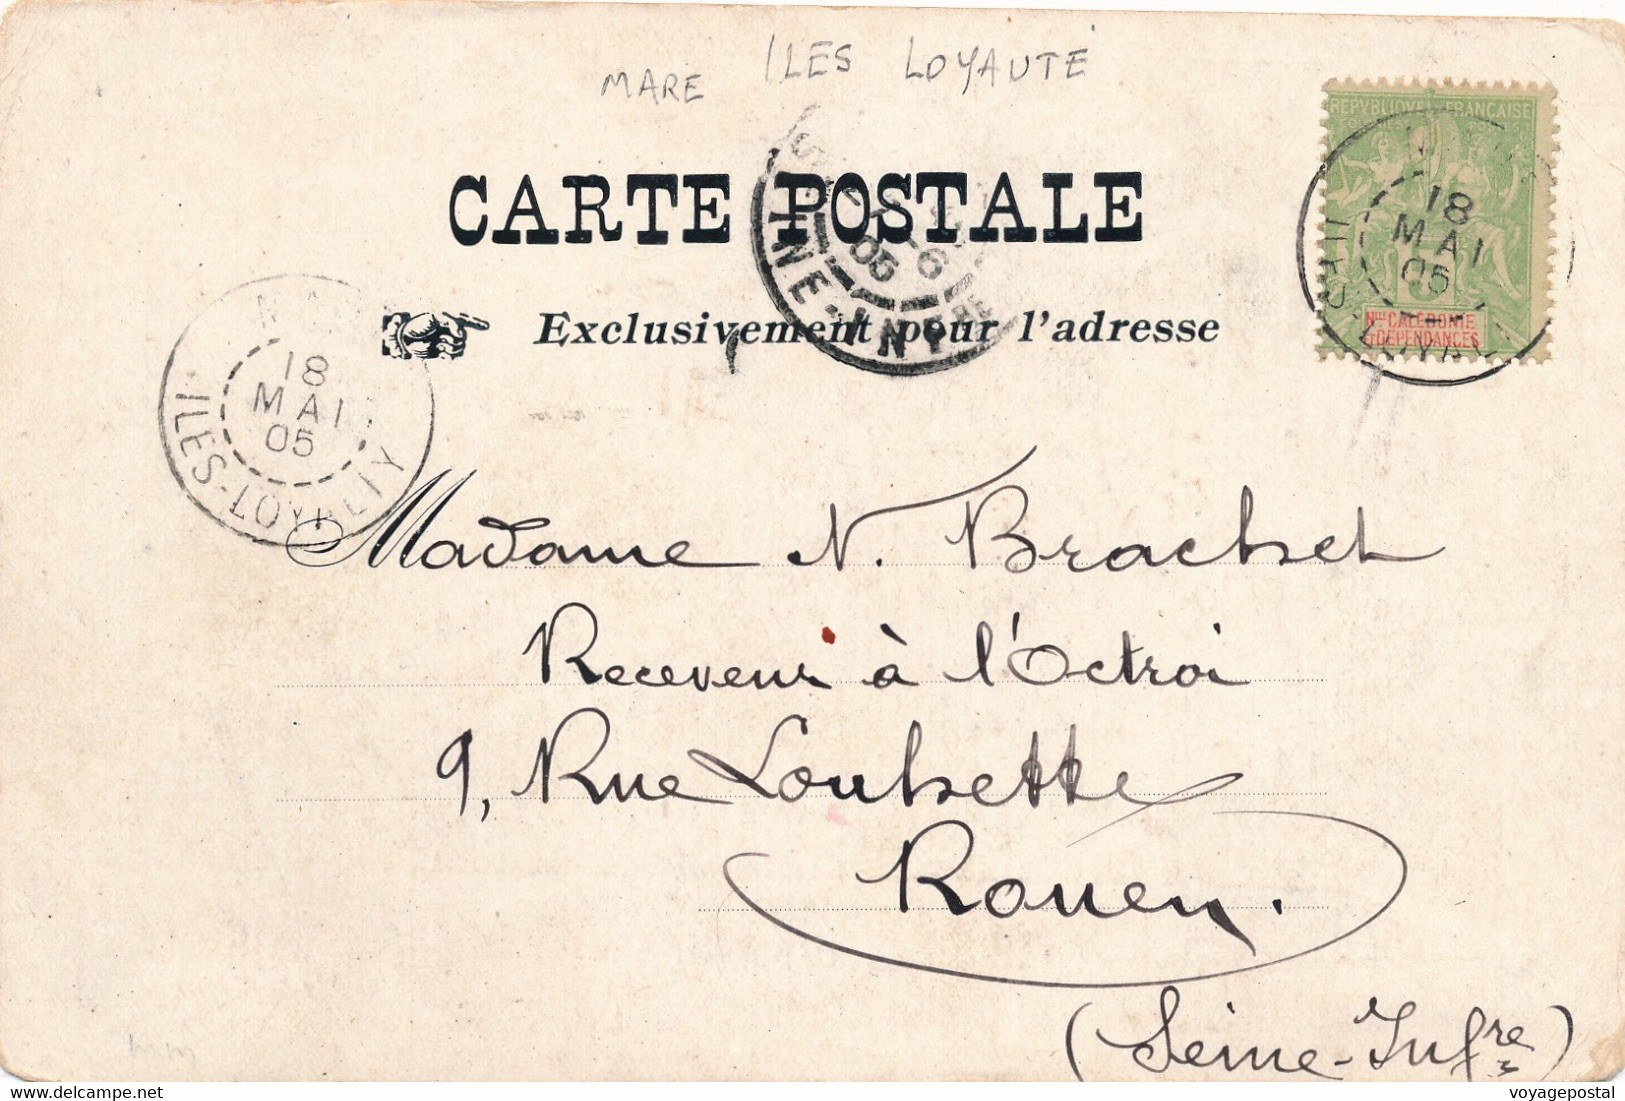 MARE ILES LOYAUTE
REPVBLIQVE FRANÇAISE
CARTE POSTALE
18
MAI
05
Nlle CALEDONIE
ET DEPENDANCES
6
05
INE-INFRE
Exclusivement pour l'adresse
18
MAI
05
ILES-LOYALTY
Madame N. Brachet
Receveur à l'Octroi
9, Rue
Rouen.
(Seine-Infre)
voyagepostal